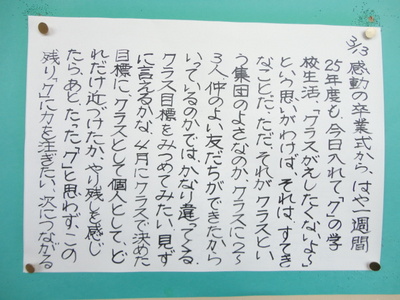 3/13 感動の卒業式から、はや一週間
25年度も、今日入れて「7」の学
校生活、「クラスがえしたくないよ〜」
という思いがわけば、それは、すてき
なことだ。ただ、それがクラスとい
う集団のよさなのか、クラスに2〜
3人仲のよい友だちができたから
いっているのかでは、かなり違ってくる。
クラス目標をみつめてみたい。見ず
に言えるかな。4月にクラスで決めた
目標に、クラスとして個人として、ど
れだけ近づけたか、やり残しを感じ
たら、あと、たった「7」と思わず、この
残り「7」に力を注ぎたい。次につながる